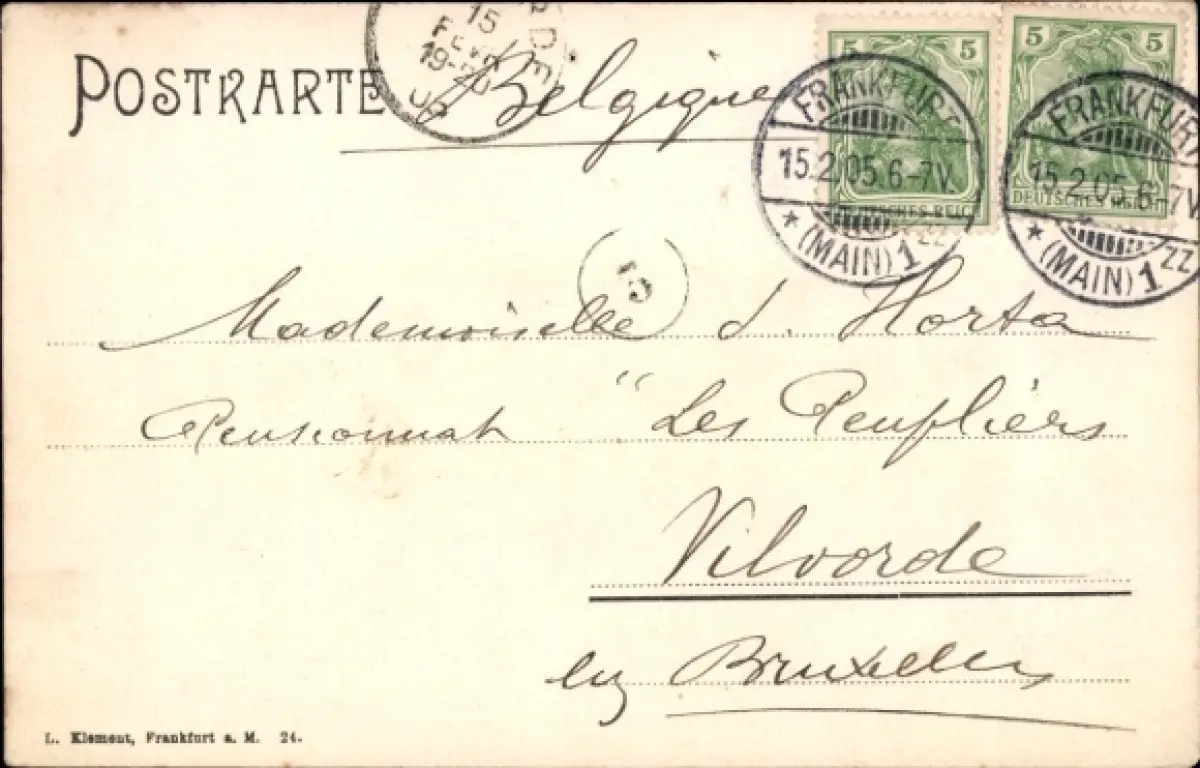 POSTKARTE
Belgique
15
FEVR
19-20
05
5 5
5 5
FRANKFURT
15.2.05.6-7V.
* (MAIN) 1 ZZ
DEUTSCHES REICH
FRANKFURT
15.2.05.6-7V.
* (MAIN) 1 ZZ
DEUTSCHES REICH
15
Mademoiselle J. Horta
Pensionnat "Les Peupliers
Vilvorde
by Bruxelles
L. Klement, Frankfurt a. M. 24.